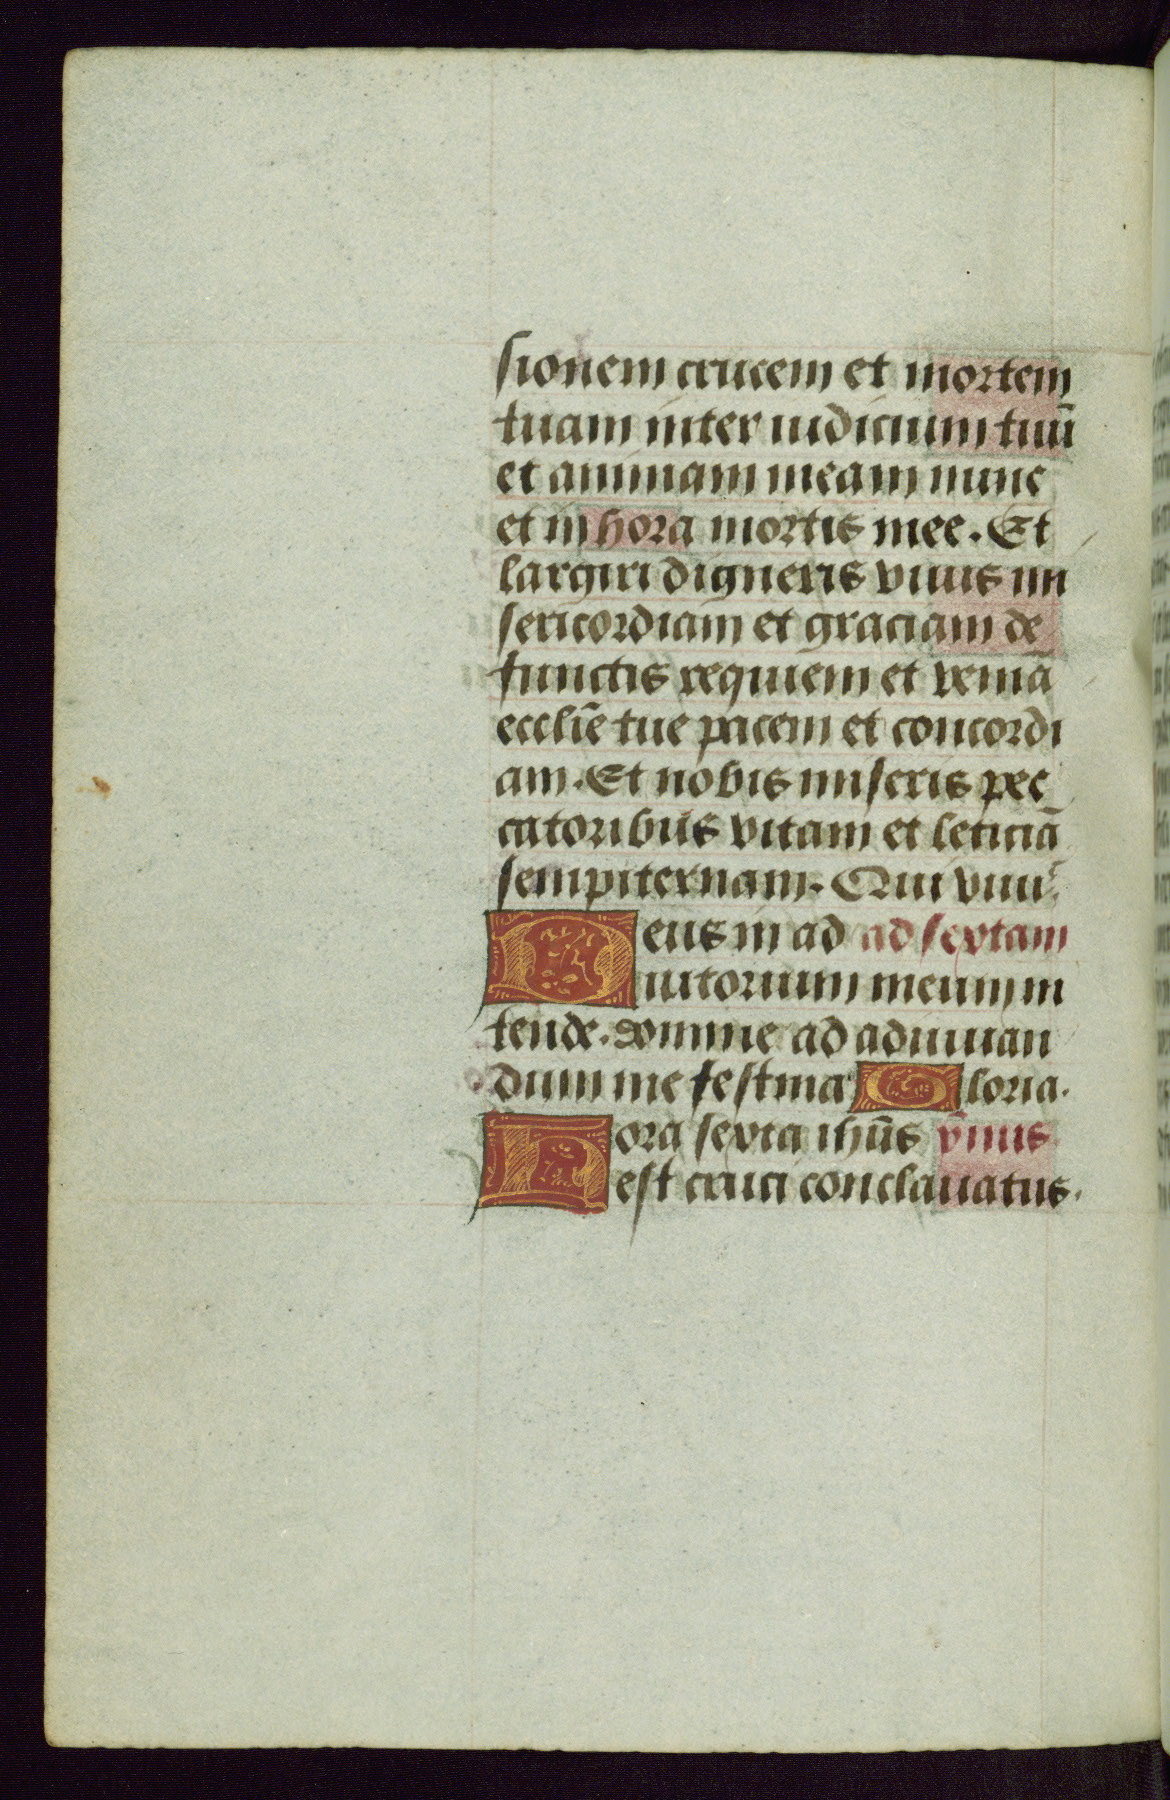 sionem crucem et mortem
tuam inter iudicium tuū
et animam meam nunc
et in hora mortis mee. Et
largiri digneris viuis mi
sericordiam et graciam de
functis requiem et veniā
eccliē tue pacem et concordi
am. Et nobis miseris pec
catoribus vitam et leticiā
sempiternam. Qui viuis
Deus in ad ad sextam
iutorium meum in
tende. domine ad adiuuan
dum me festina Gloria.
Hora sexta ihūs ymus
est cruci conclauatus.